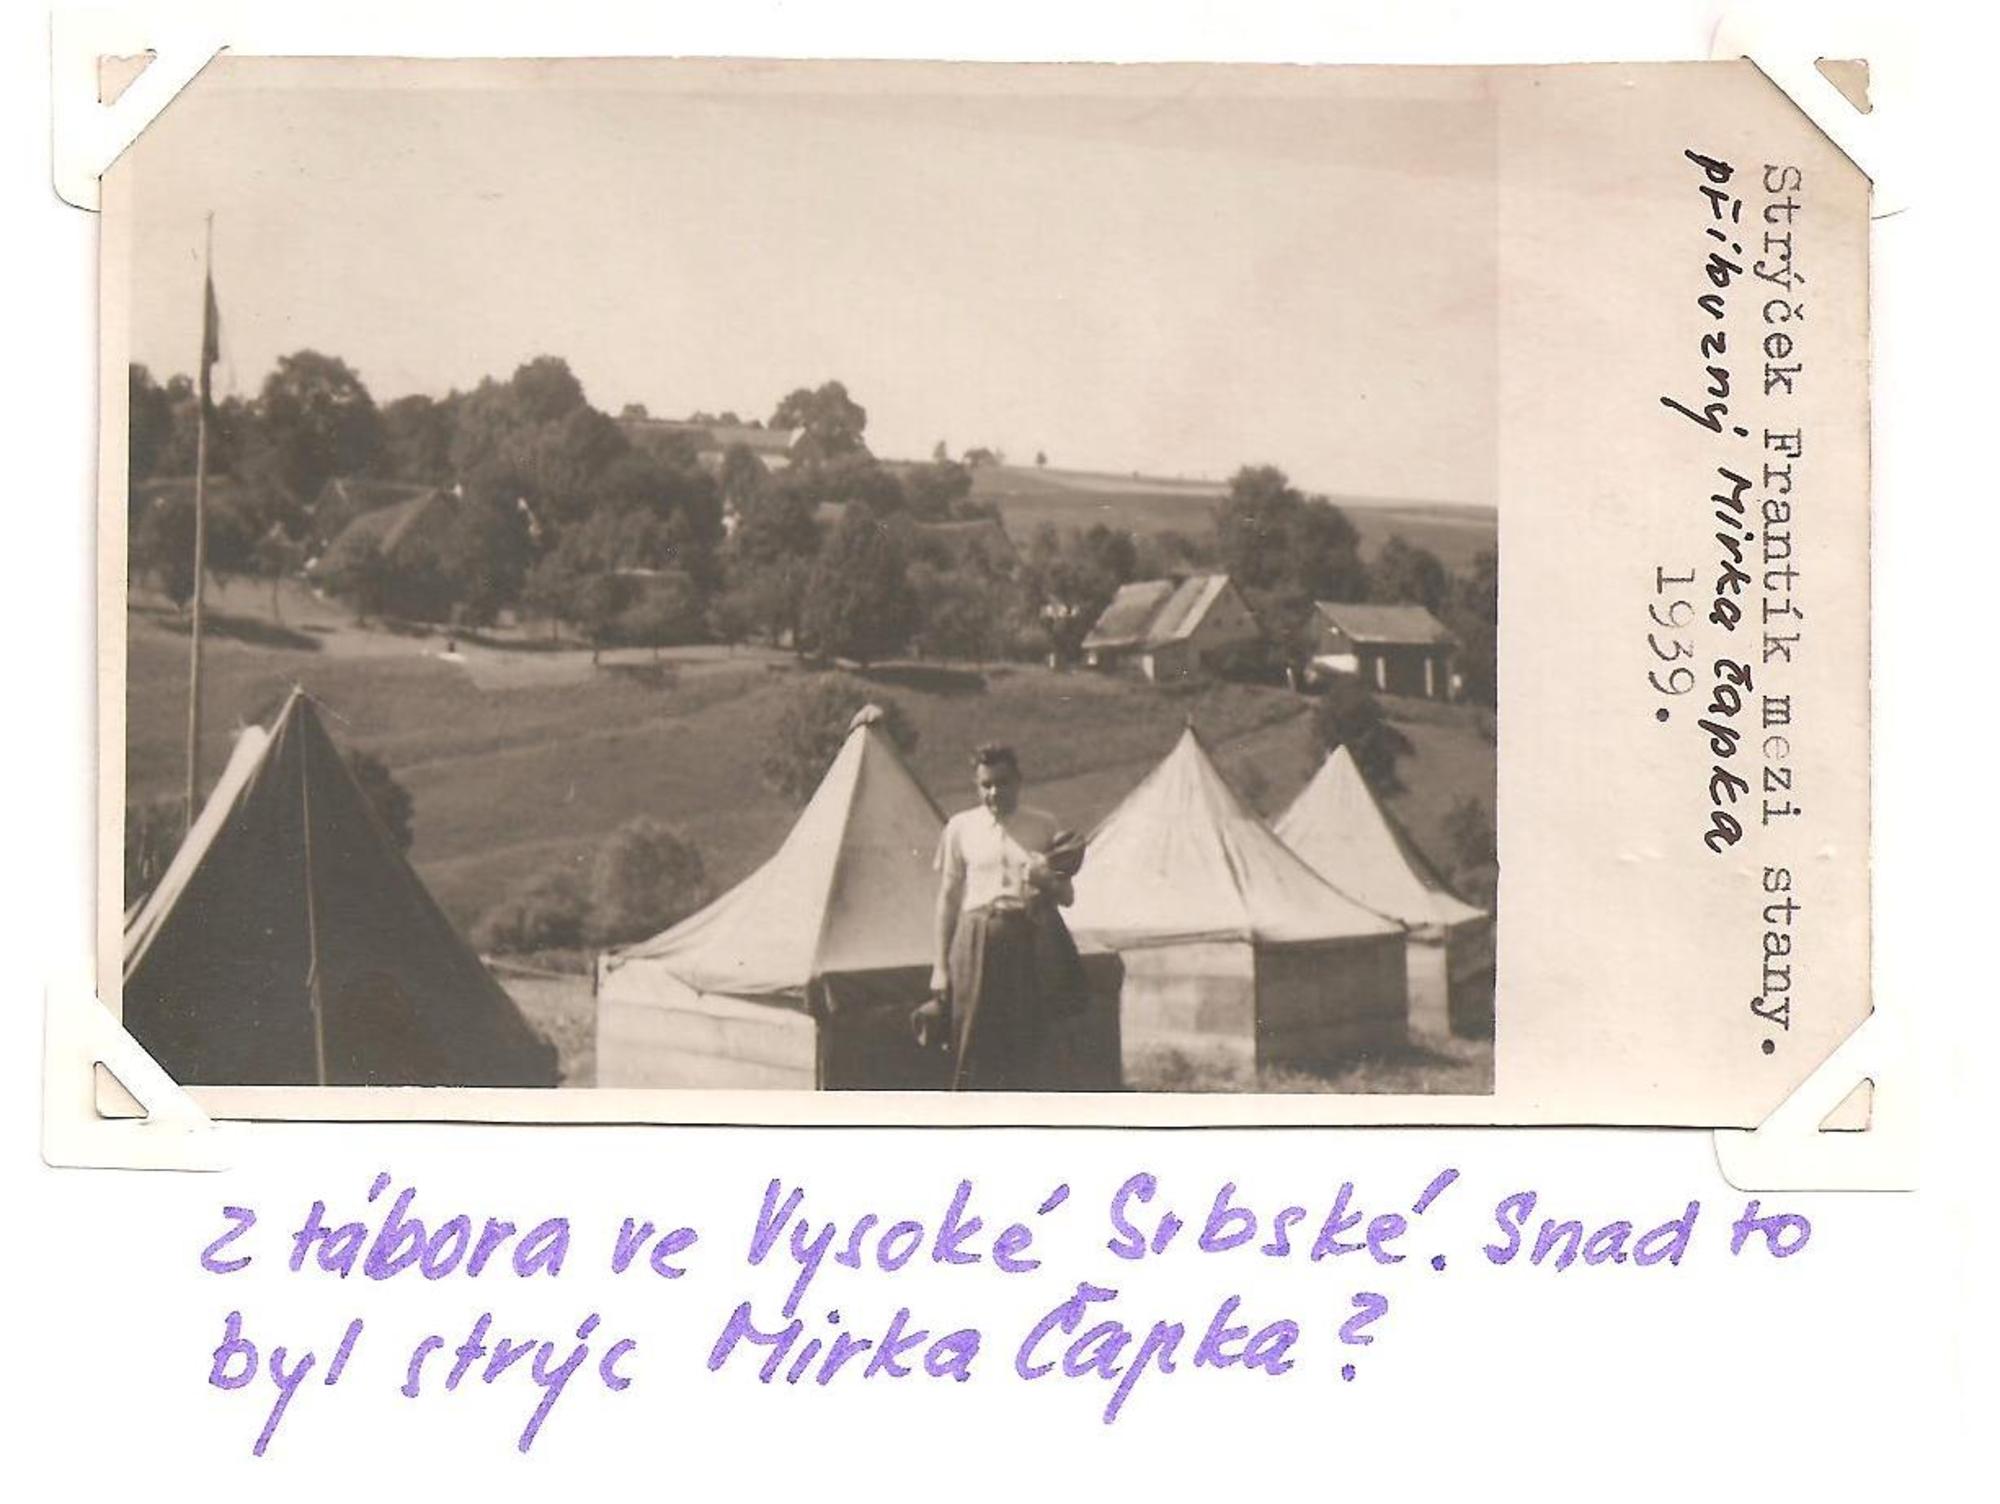 Strýček Frantík mezi stany.
příbuzný Mirka Čapka
1939.
z tábora ve Vysoké Srbské. Snad to
byl strýc Mirka Čapka?